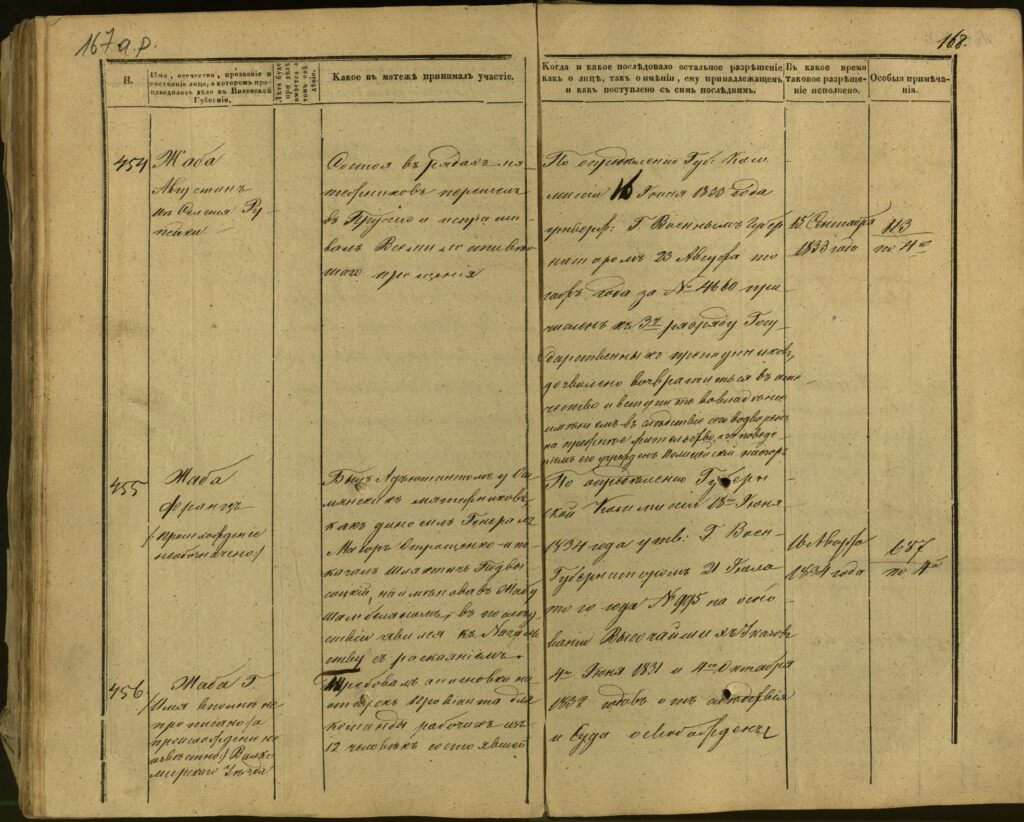 167 а.р.
168.
Н.
Имя, отечество, прозваніе и
состояніе лица, о которомъ про-
изводилось дѣло въ Виленской
Губерніи.
Какое въ мятежѣ принималъ участіе.
Когда и какое послѣдовало остальное разрѣшеніе
какъ о лицѣ, такъ о имѣніи, ему принадлежащемъ
и как поступлено съ симъ послѣднимъ.
Въ какое время
таковое разрѣше-
ніе исполнено.
Особыя примѣча-
нія.
454
Жаба
Августинъ
Состоя въ рядахъ мя-
тежниковъ перешелъ
въ Пруссію и испраши-
валъ Всемилостивѣй-
шаго прощенія
По опредѣленію Губ: Ком-
мисіи 16 Іюня 1833 года
утверж: Г. Военнымъ Губер-
наторомъ 23 Августа то-
года за № 4660 при-
численъ къ 3му разряду Госу-
дарственныхъ преступниковъ,
дозволено возвратиться въ оте-
чество и вступить во владѣніе
имѣніемъ въ слѣдствіе сего водворенъ
на прежнее жительство, а за поведе-
ніемъ его учрежденъ Полицейскій надзоръ
15 Сентября
1833 года
113
по
455
Жаба
Францъ
/:происхожденіе
необозначено:/
Былъ Адъютантомъ у Ош-
мянскихъ мятежниковъ,
какъ доносилъ Генералъ
Маіоръ Отрощенко и по-
казалъ шляхтичъ Подвы-
соцкій, наименовавъ Жабу
Шамбеляномъ, въ послѣд-
ствіи явился къ Началь-
ству съ раскаяніемъ.
По опредѣленію Губерн-
ской Коммисіи 18го Іюня
1834 года утв: Г. Воен-
Губернаторомъ 21 Іюля
того года № 995 на осно-
ваніи Высочайшихъ Указовъ
4го Іюня 1831 и 4го Октября
1832 годовъ отъ
и Суда освобожденъ
1834 года
657
по
456
Жаба Г.
/:Имя вполнѣ не
прописано, а
происхожденіе не
извѣстно:/ Вилко-
мирскаго Уѣзда
Требовалъ
отпускъ провіанта для
команды рабочихъ изъ
12 человѣкъ состоявшей